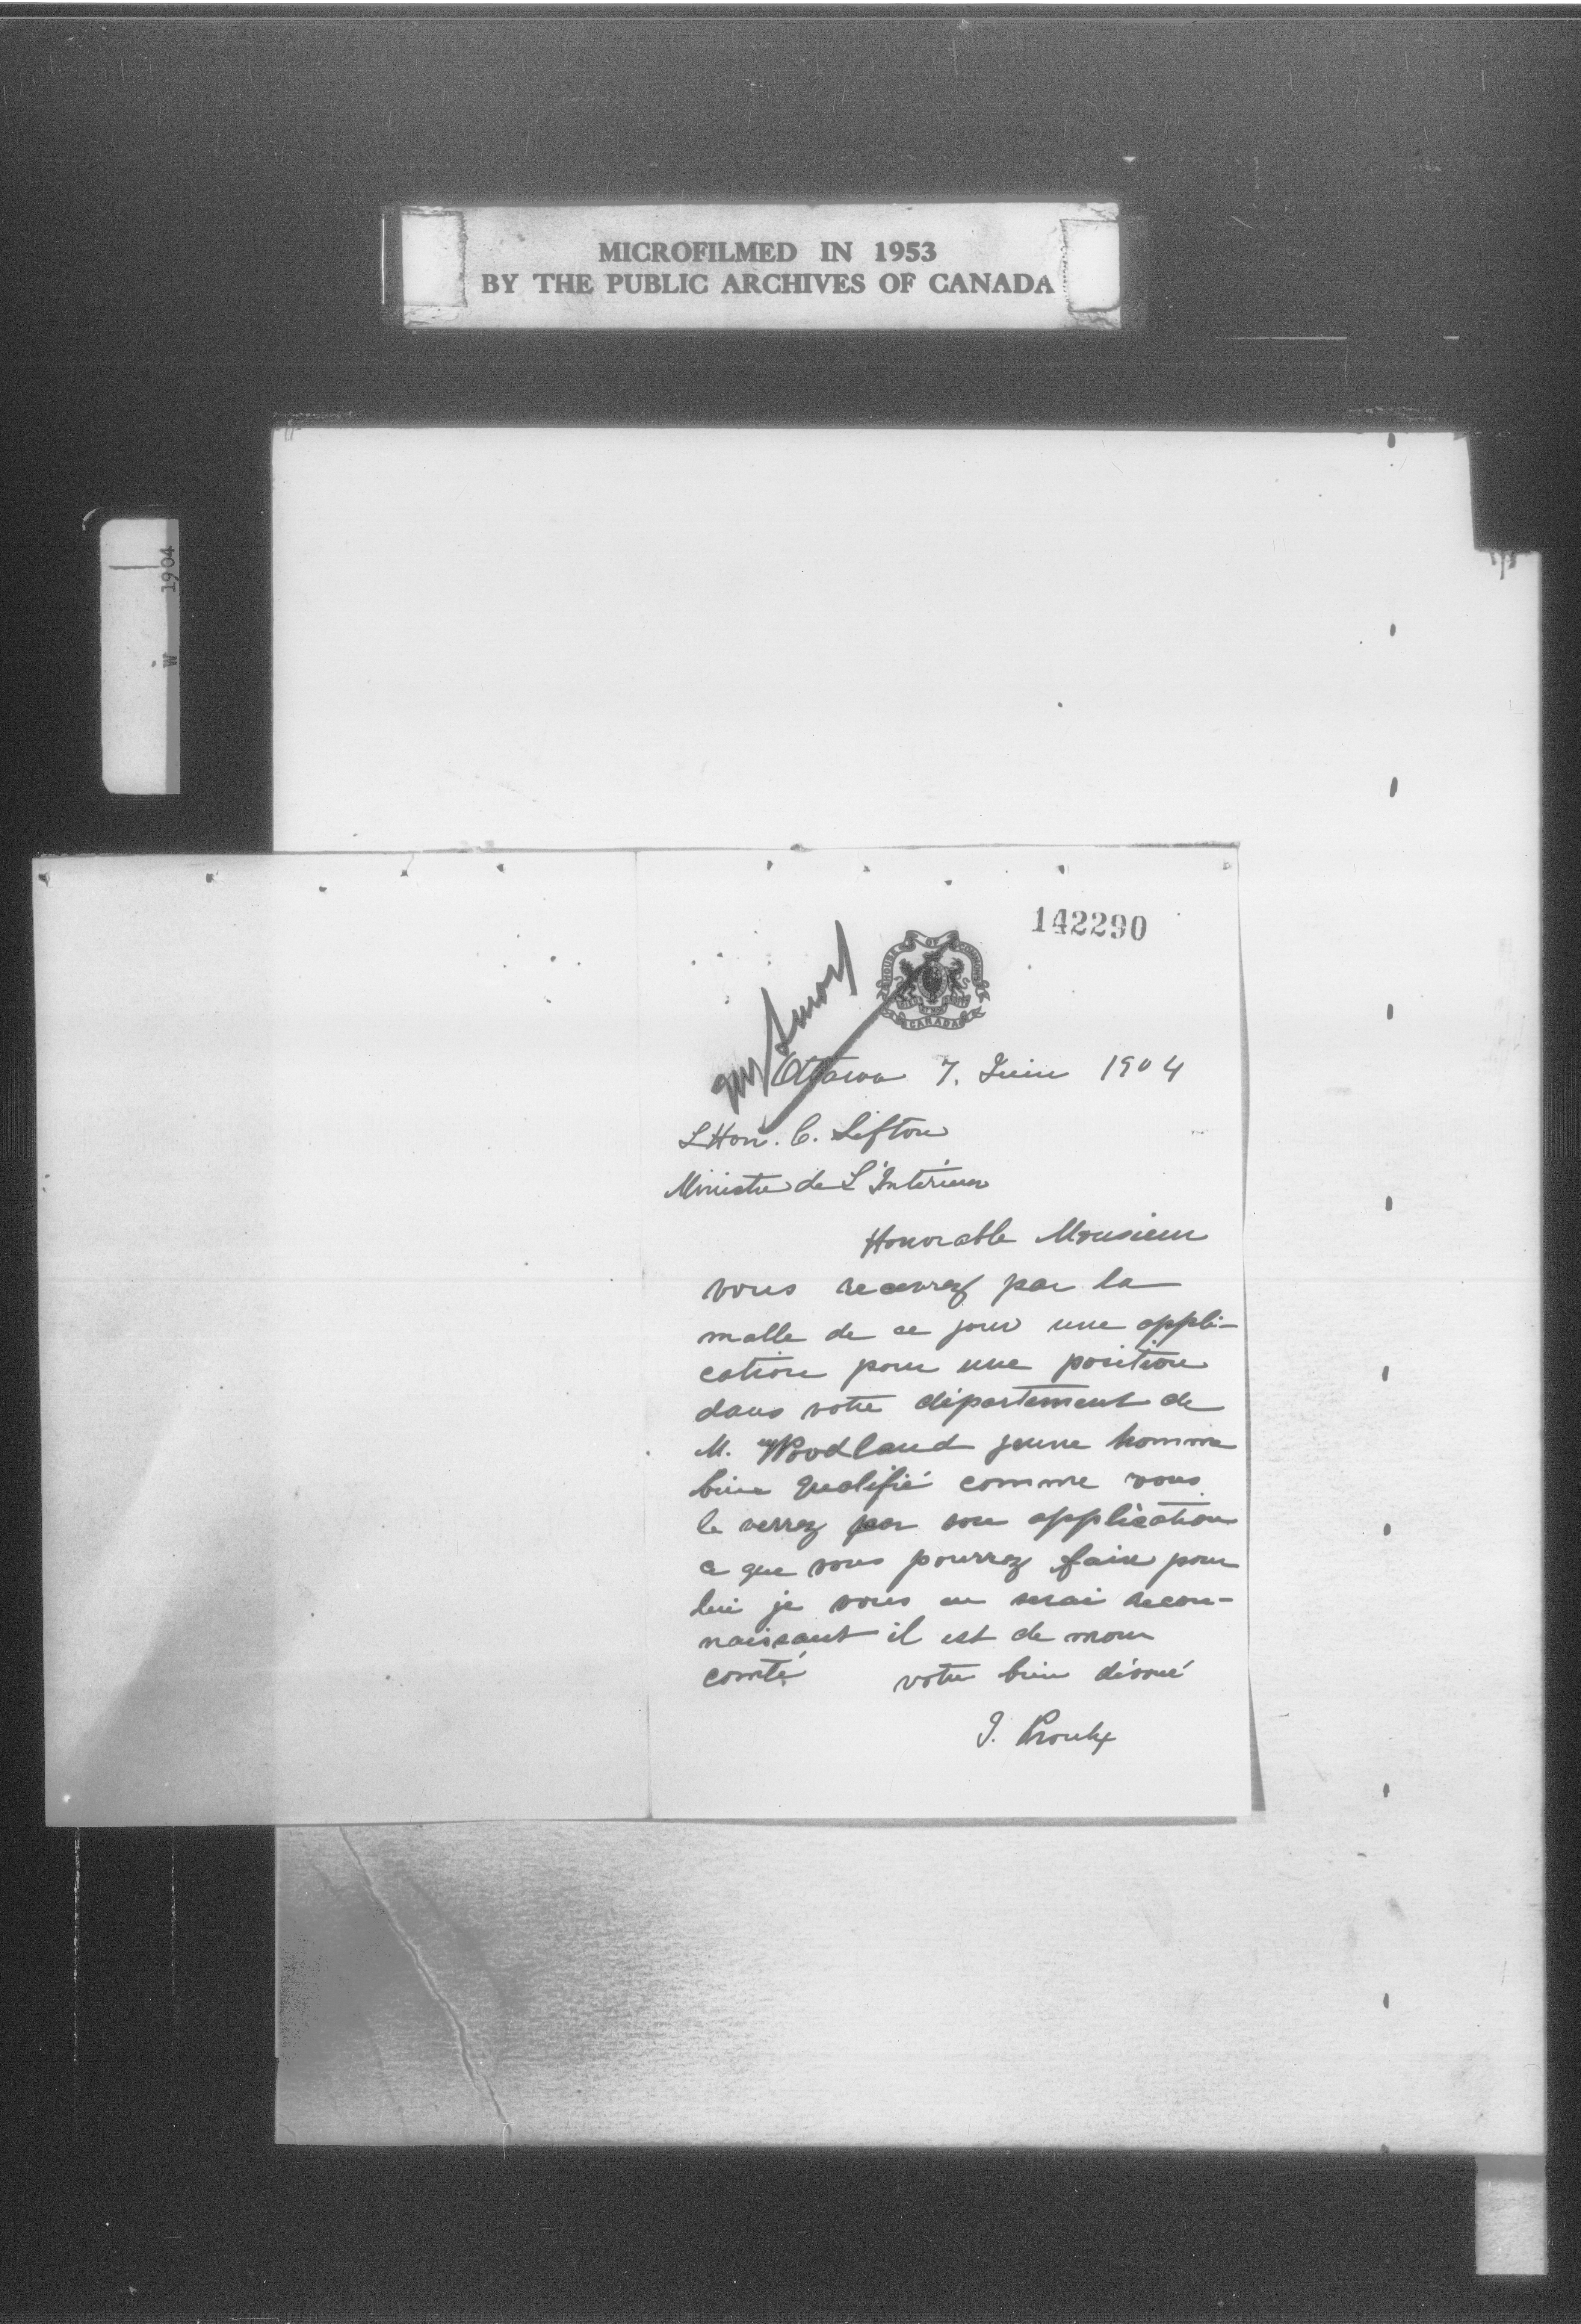 MICROFILMED IN 1953
BY THE PUBLIC ARCHIVES OF CANADA
W 1904
142290
HOUSE OF COMMONS
CANADA
Ottawa 7. Juin 1904
L Hon. C. Sifton
Ministre de L'Intérieur
Honorable Monsieur
vous recevrez par la
malle de ce jour une appli-
cation pour une position
dans votre département de
M. Woodland jeune homme
bien qualifié comme vous
le verrez par son application
ce que vous pourrez faire pour
lui je vous en serai recon-
naissant il est de mon
comté votre bien dévoué
I. Proulx